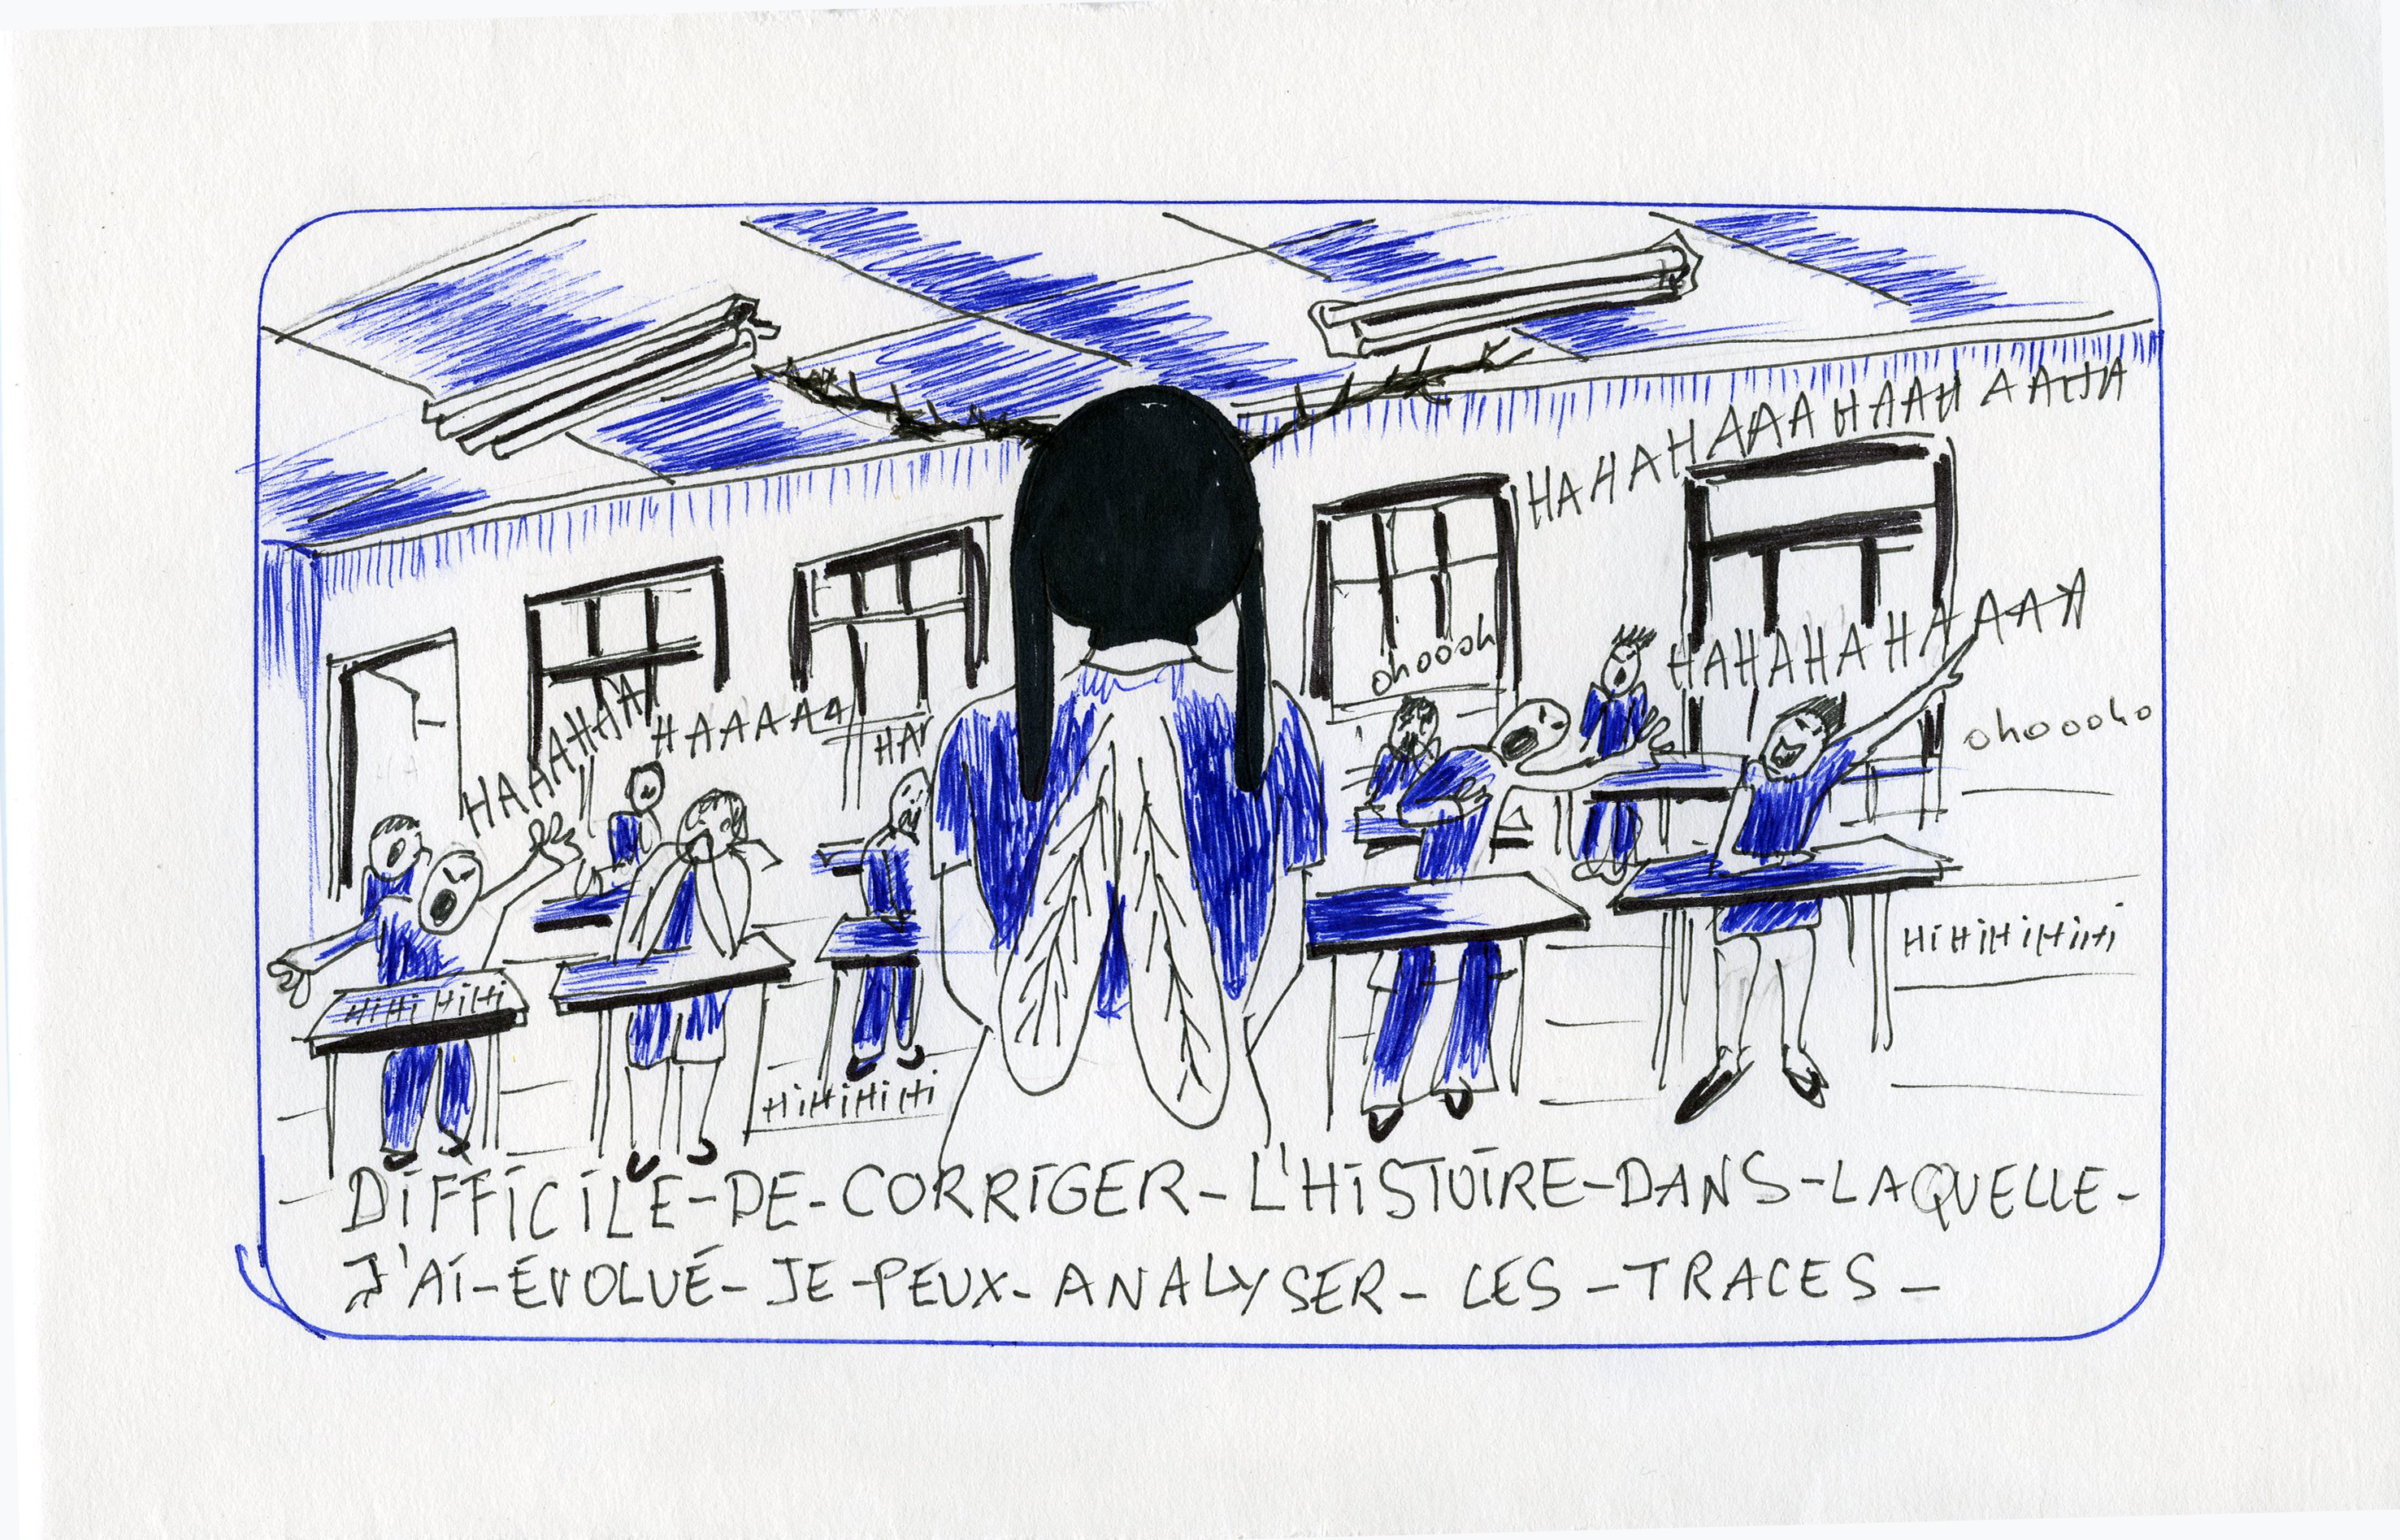 HAHAHAHAAAHAAHAAAHA
HAHAHAHAAAAA
ohoooh
HAAAAHAA
HAAAAAA
HA
ohoooho
HiHiHiHiHiHi
HiHi HiHi
HiHiHiHiHi
DIFFICILE-DE-CORRIGER-L'HISTOIRE-DANS-LAQUELLE-
J'AI-ÉVOLUÉ-JE-PEUX-ANALYSER-LES-TRACES-